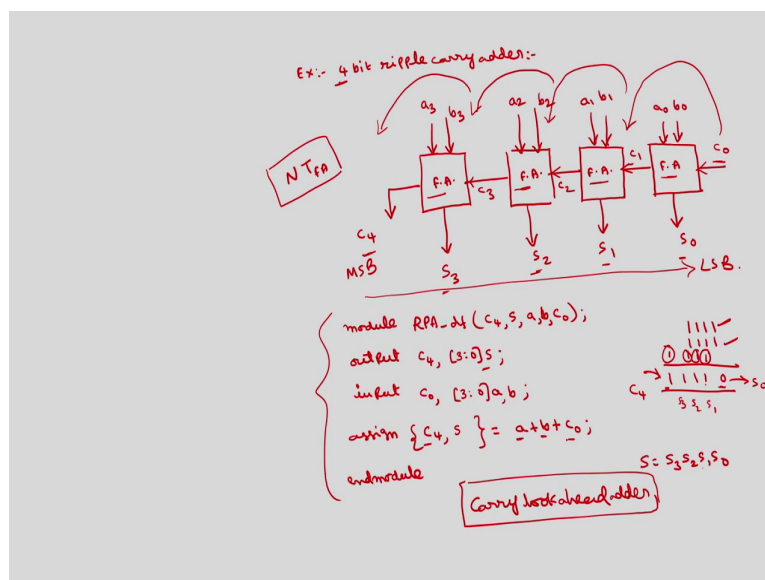 Ex:- 4 bit ripple carry adder:-
a3 b3 a2 b2 a1 b1 a0 b0
NTFA
F.A. F.A. F.A. F.A.
c3 c2 c1 c0
C4
MSB
S3 S2 S1 S0
LSB.
module RPA_df (C4, S, a, b, C0);
output C4, [3:0]S;
input C0, [3:0]a, b;
assign {C4, S } = a+b+C0;
endmodule
1111
1111
① ①①①
C4 1111 0 → S0
S3 S2 S1
S = S3 S2 S1 S0
Carry look ahead adder